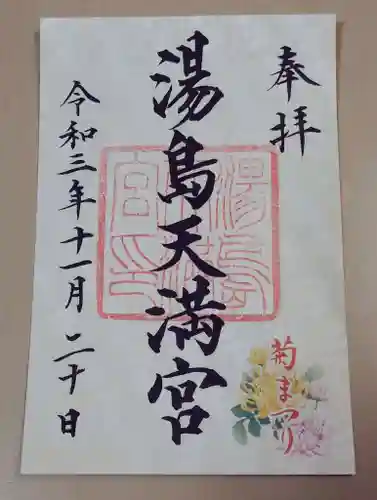 奉拝
湯島天満宮
令和三年十一月二十日
菊まつり